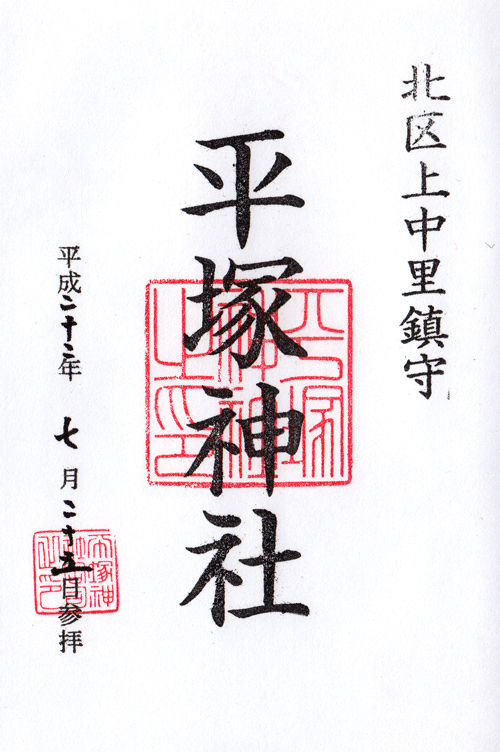 北区上中里鎮守
平塚神社
平塚神社之印
平成二十二年 七月二十五日参拝